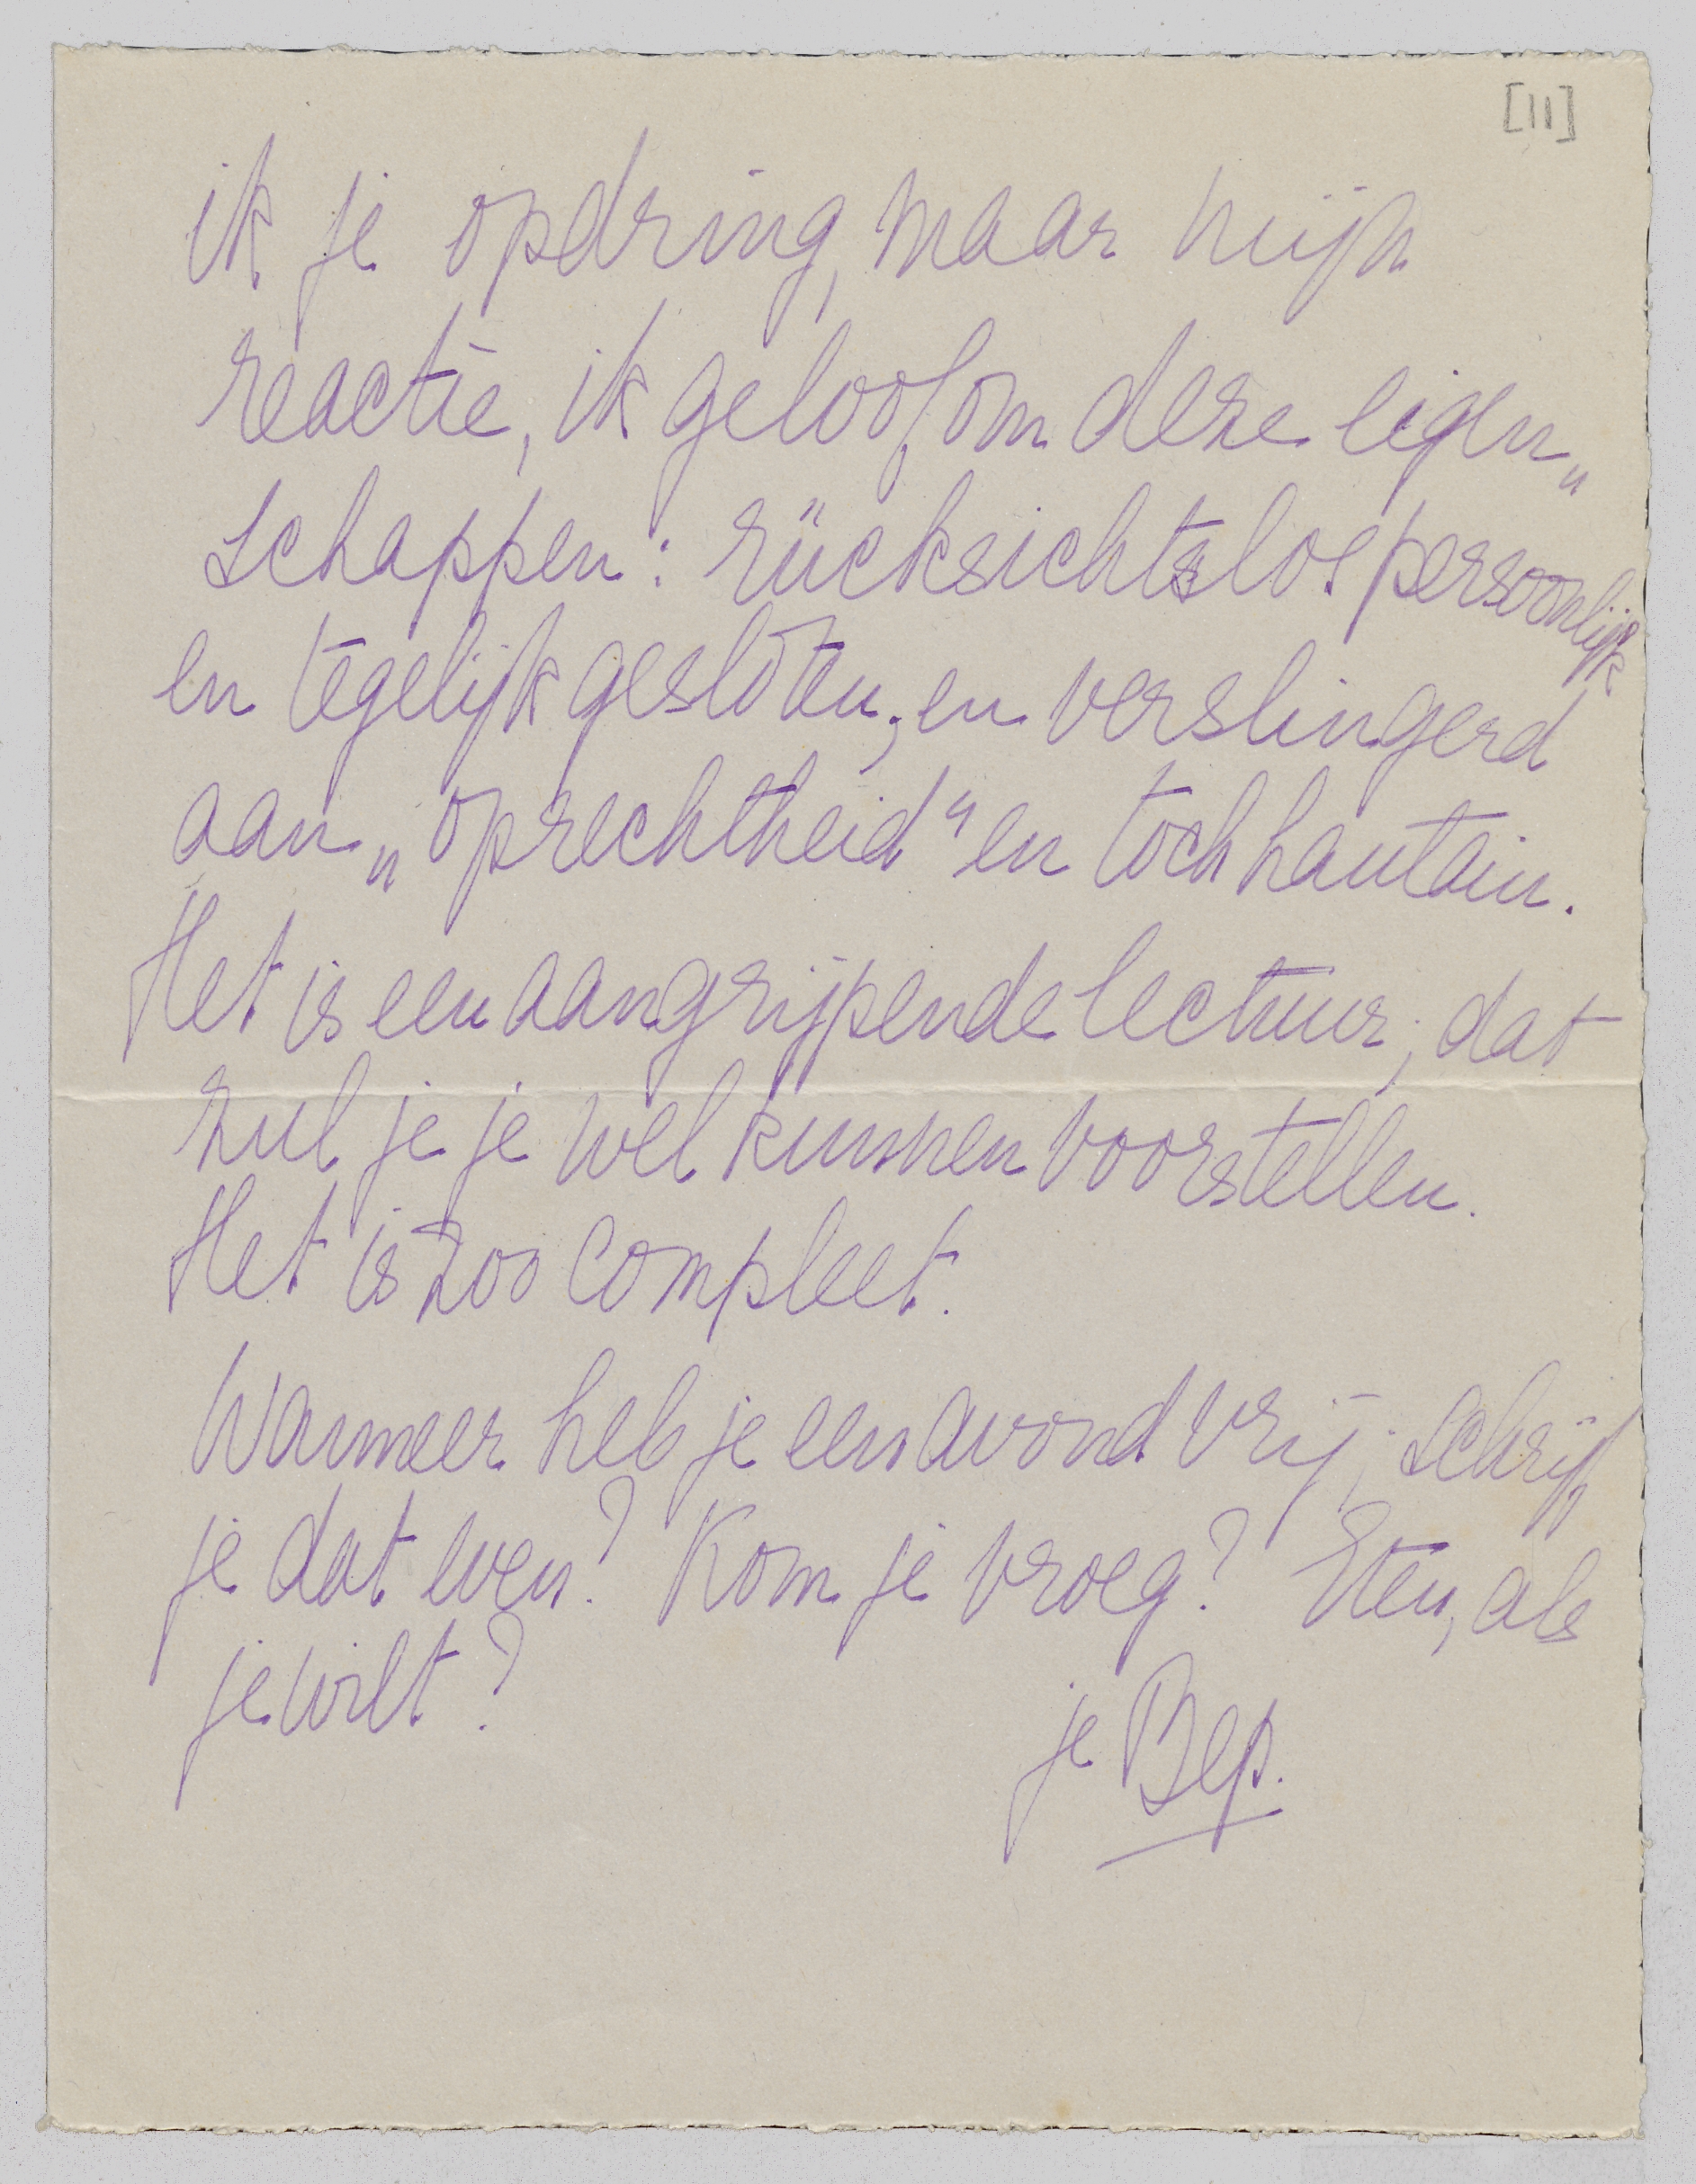 [11]
ik je opdring, maar mijn
reactie, ik geloof om deze eigen„
schappen: rücksichtslos persoonlijk
en tegelijk gesloten; en verslingerd
aan „oprechtheid" en toch hautain.
Het is een aangrijpende lectuur; dat
zul je je wel kunnen voorstellen.
Het is zoo compleet.
Wanneer heb je een avond vrij; schrijf
je dat even? Kom je vroeg? Eten, als
je wilt?
je Bep.